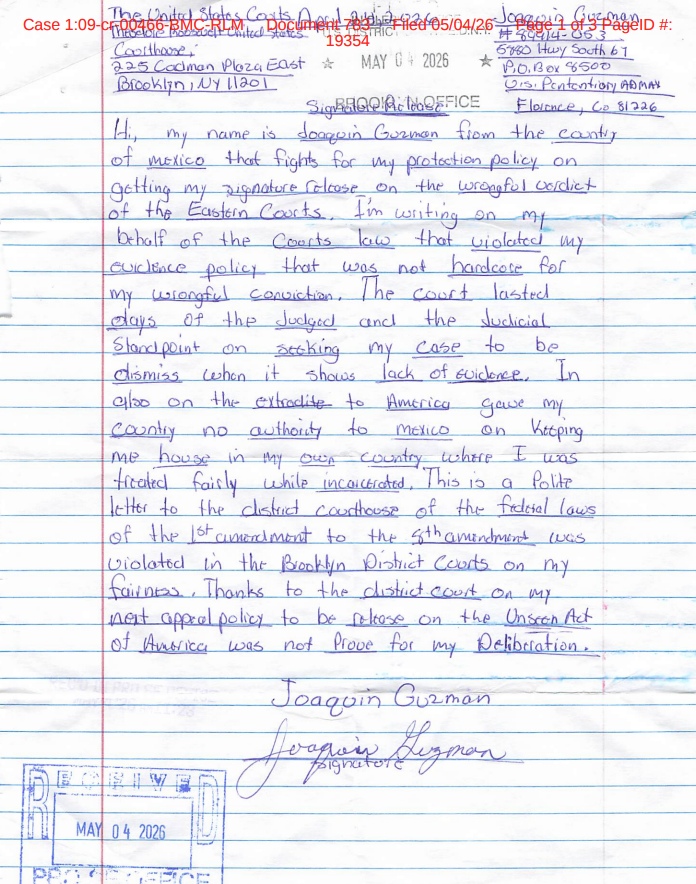 Case 1:09-cr-00466-BMC-RLM Document 783 Filed 05/04/26 Page 1 of 3 PageID #:
19354
The United States Courts
Joaquin Guzman
United States
# 89914-053
Courthouse,
5880 Hwy South 67
225 Cadman Plaza East
★ MAY 04 2026 ★
P.O. Box 8500
Brooklyn, NY 11201
U.S. Penitentiary ADMAX
BROOKLYN OFFICE
Signature Release
Florence, Co 81226
Hi, my name is Joaquin Guzman from the country
of mexico that fights for my protection policy on
getting my signature release on the wrongful verdict
of the Eastern Courts. I'm writing on my
behalf of the Courts law that violated my
evidence policy that was not hardcore for
my wrongful conviction. The court lasted
days of the Judged and the Judicial
Standpoint on seeking my case to be
dismiss when it shows lack of evidence. In
also on the extradite to America gave my
country no authority to mexico on keeping
me house in my own country where I was
treated fairly while incarcerated. This is a Polite
letter to the district courthouse of the federal laws
of the 1st amendment to the 8th amendment was
violated in the Brooklyn District Courts on my
fairness. Thanks to the district court on my
next appeal policy to be release on the Unseen Act
of America was not Prove for my Deliberation.
Joaquin Guzman
Joaquin Guzman
Signature
RECEIVED
MAY 04 2026
PRO SE OFFICE